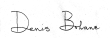 Denis Bohane